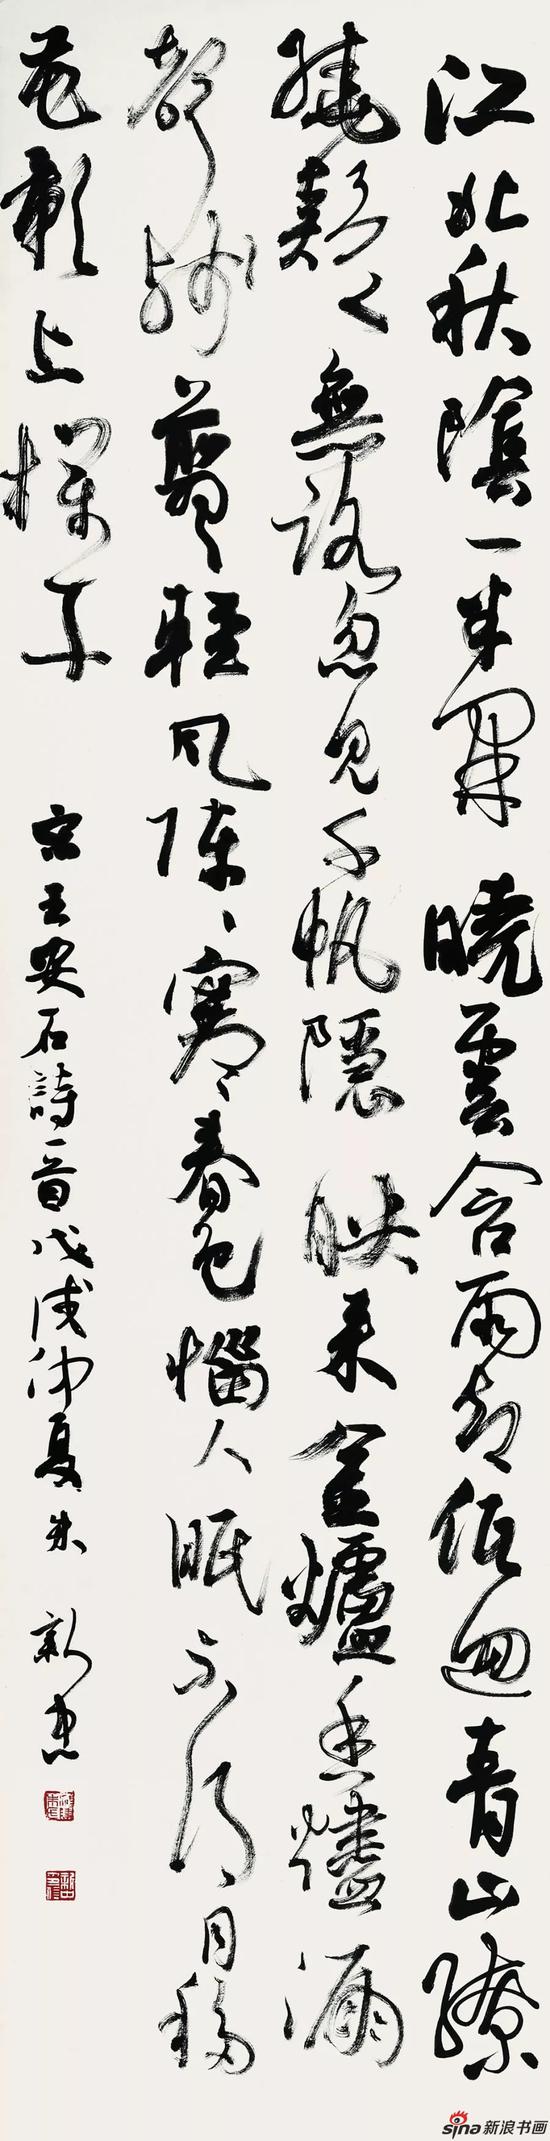 江北秋陰一半開曉雲含雨却低迴青山繚
繞疑無路忽見千帆隱映來金爐香燼漏
聲殘翦〻輕風陣〻寒春色惱人眠不得月移
花影上欄干
宋王安石詩一首戊戌仲夏朱新
sina 新浪书画